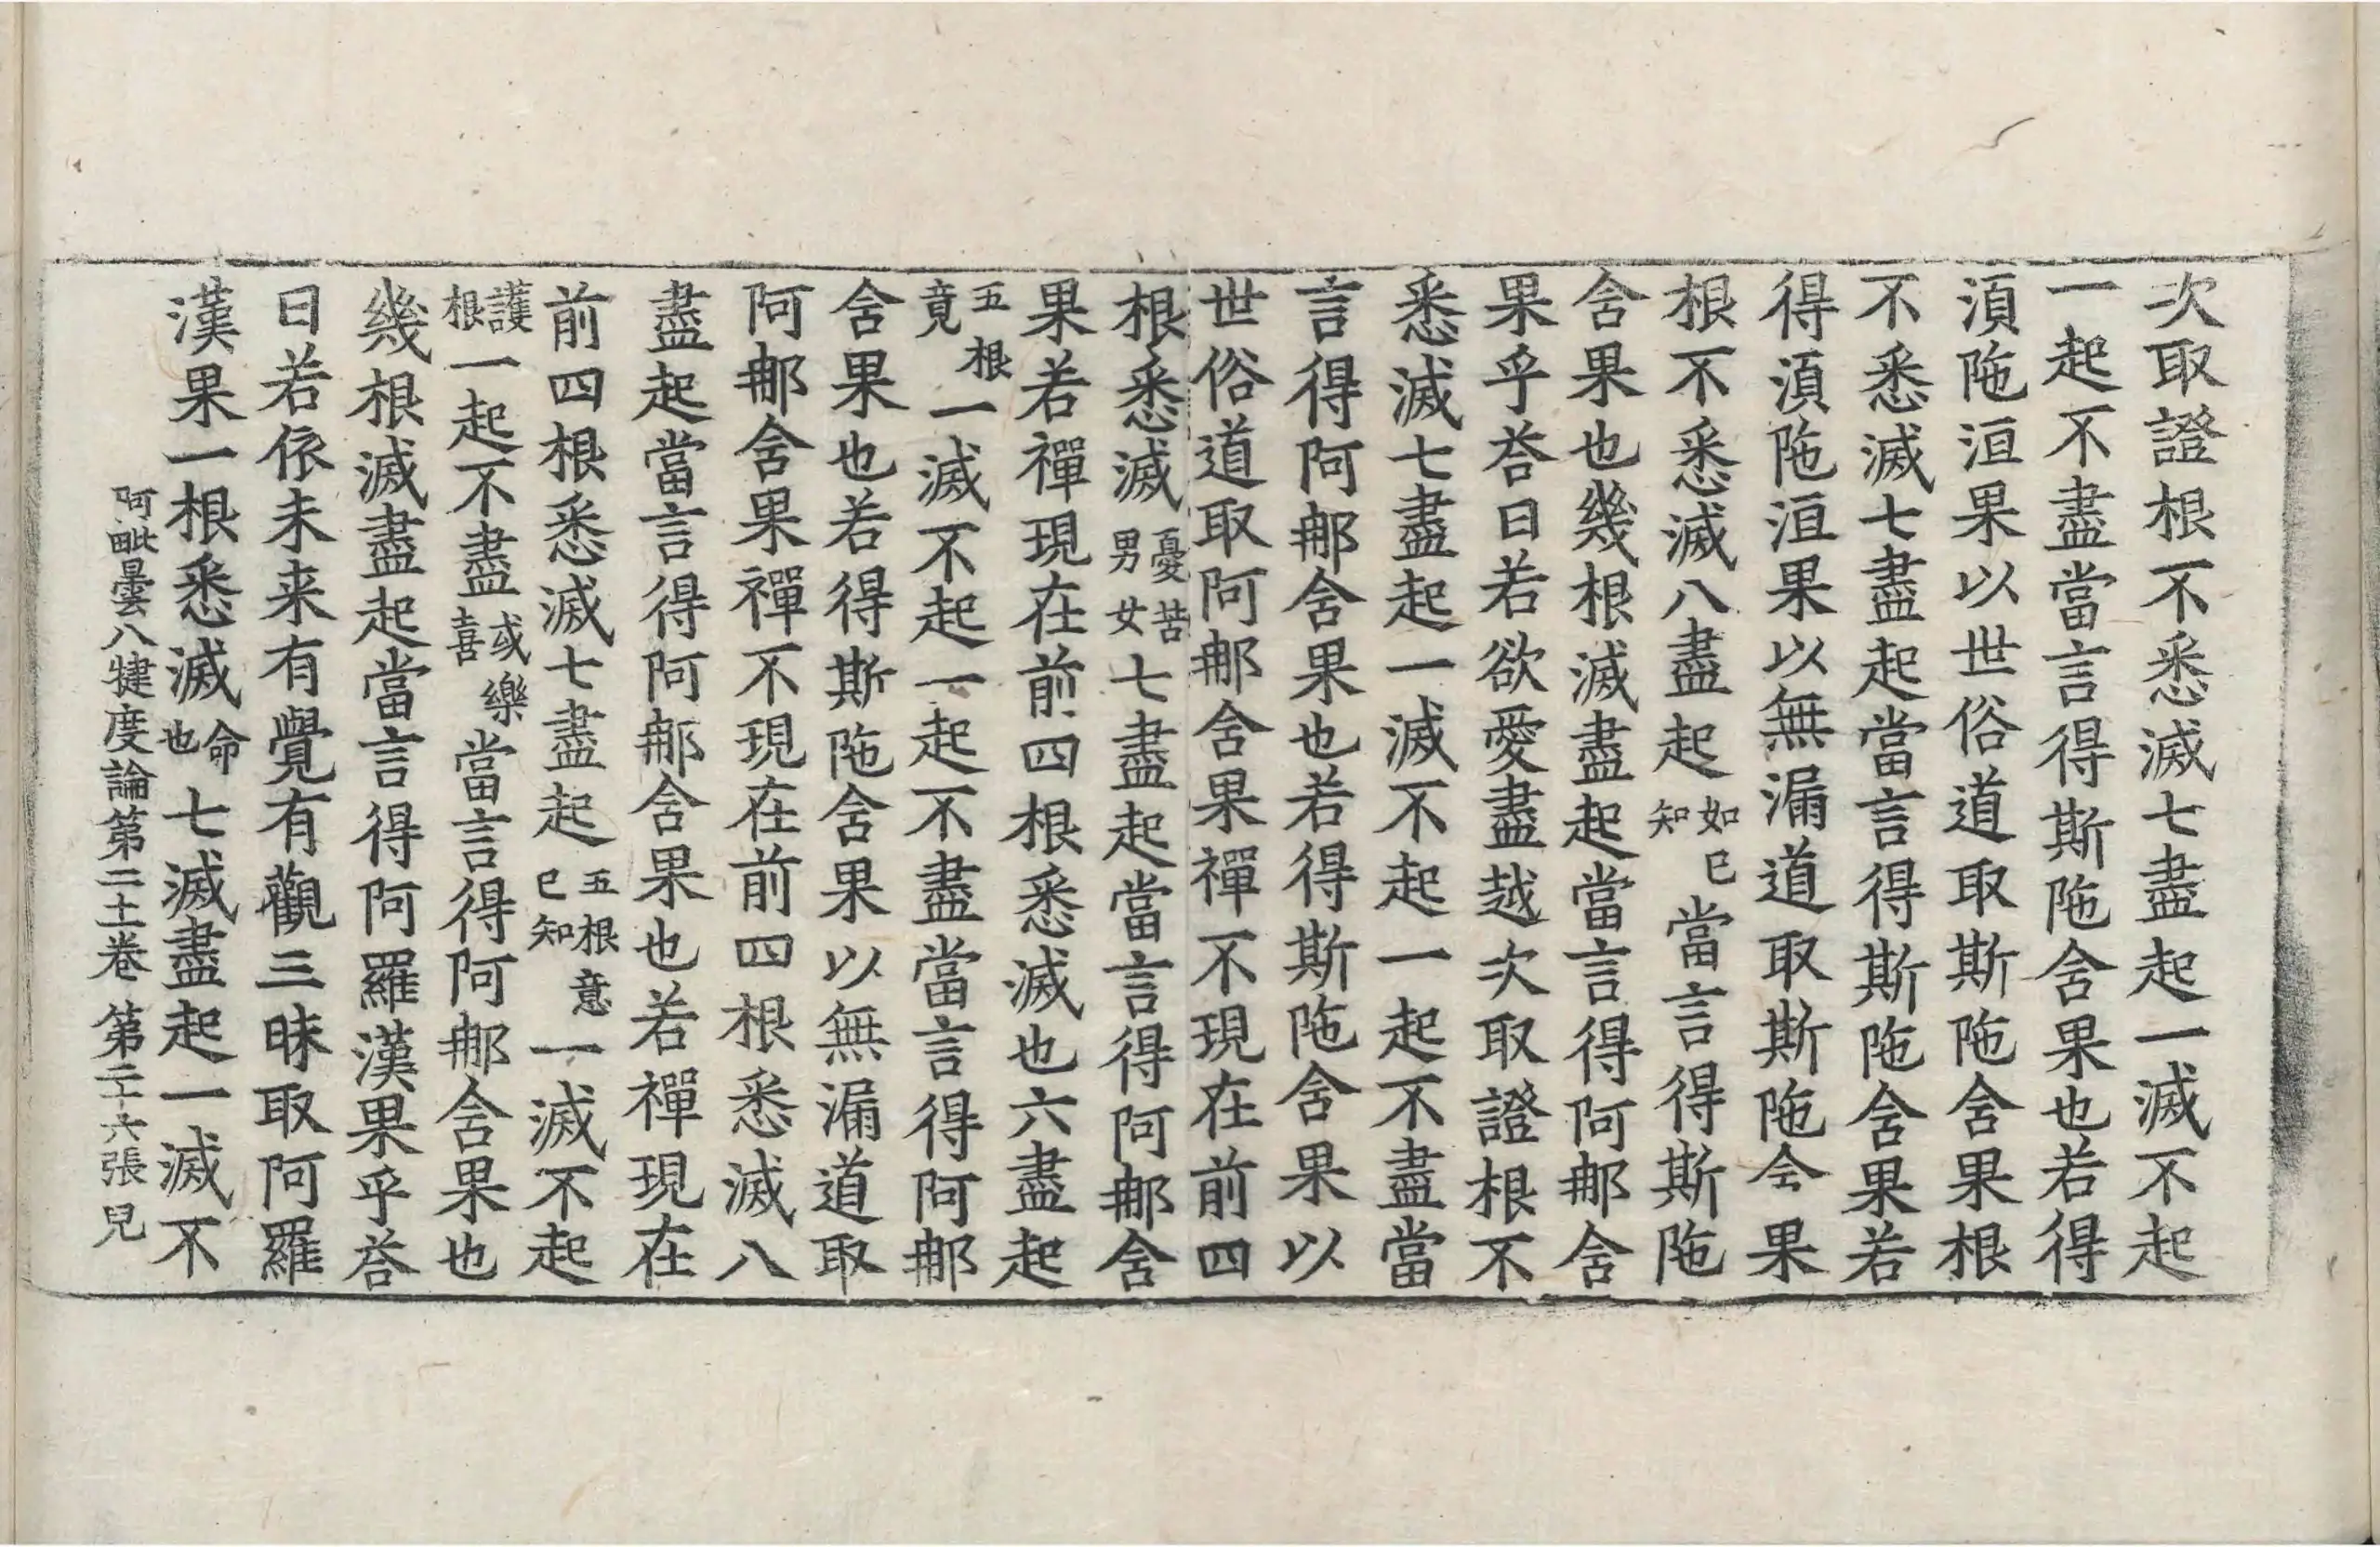 次取證根不悉滅七盡起一滅不起
一起不盡當言得斯陁舍果也若得
湏陁洹果以世俗道取斯陁舍果根
不悉滅七盡起當言得斯陁舍果若
得湏陁洹果以無漏道取斯陁含果
根不悉滅八盡起如已知當言得斯陁
舍果也幾根滅盡起當言得阿𨚗舍
果乎荅曰若欲愛盡越次取證根不
悉滅七盡起一滅不起一起不盡當
言得阿𨚗舍果也若得斯陁舍果以
世俗道取阿𨚗舍果禪不現在前四
根悉滅憂苦男女七盡起當言得阿𨚗舍
果若禪現在前四根悉滅也六盡起
五根竟一滅不起一起不盡當言得阿𨚗
舍果也若得斯陁舍果以無漏道取
阿𨚗舍果禪不現在前四根悉滅八
盡起當言得阿𨚗舍果也若禪現在
前四根悉滅七盡起五根意已知一滅不起
護根一起不盡或樂喜當言得阿𨚗舍果也
幾根滅盡起當言得阿羅漢果乎荅
曰若依未来有覺有觀三昧取阿羅
漢果一根悉滅命也七滅盡起一滅不
阿毗曇八犍度論第二十一卷 第二十六張 兒